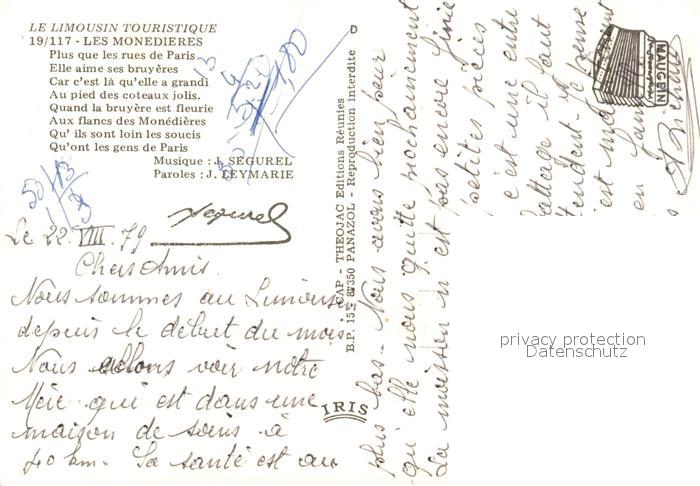 LE LIMOUSIN TOURISTIQUE
19/117 - LES MONEDIERES
Plus que les rues de Paris
Elle aime ses bruyères
Car c'est là qu'elle a grandi
Au pied des coteaux jolis.
Quand la bruyère est fleurie
Aux flancs des Monédières
Qu' ils sont loin les soucis
Qu'ont les gens de Paris
Musique : J. SEGUREL
Paroles : J. LEYMARIE
Segurel
Le 22 VIII 79
Chers Amis.
Nous sommes au Limousin
depuis le début du mois.
Nous allons voir notre
Mère qui est dans une
maison de soins à
40 km. Sa santé est au
plus bas. Nous avons bien peur
qu'elle nous quitte prochainement
La moisson n'est pas encore finie
petites pièces
c'est une entre
il faut
en
CAP - THEOJAC Editions Réunies
B.P. 15 - 87350 PANAZOL - Reproduction interdite
IRIS
MAUGEIN
privacy protection
Datenschutz